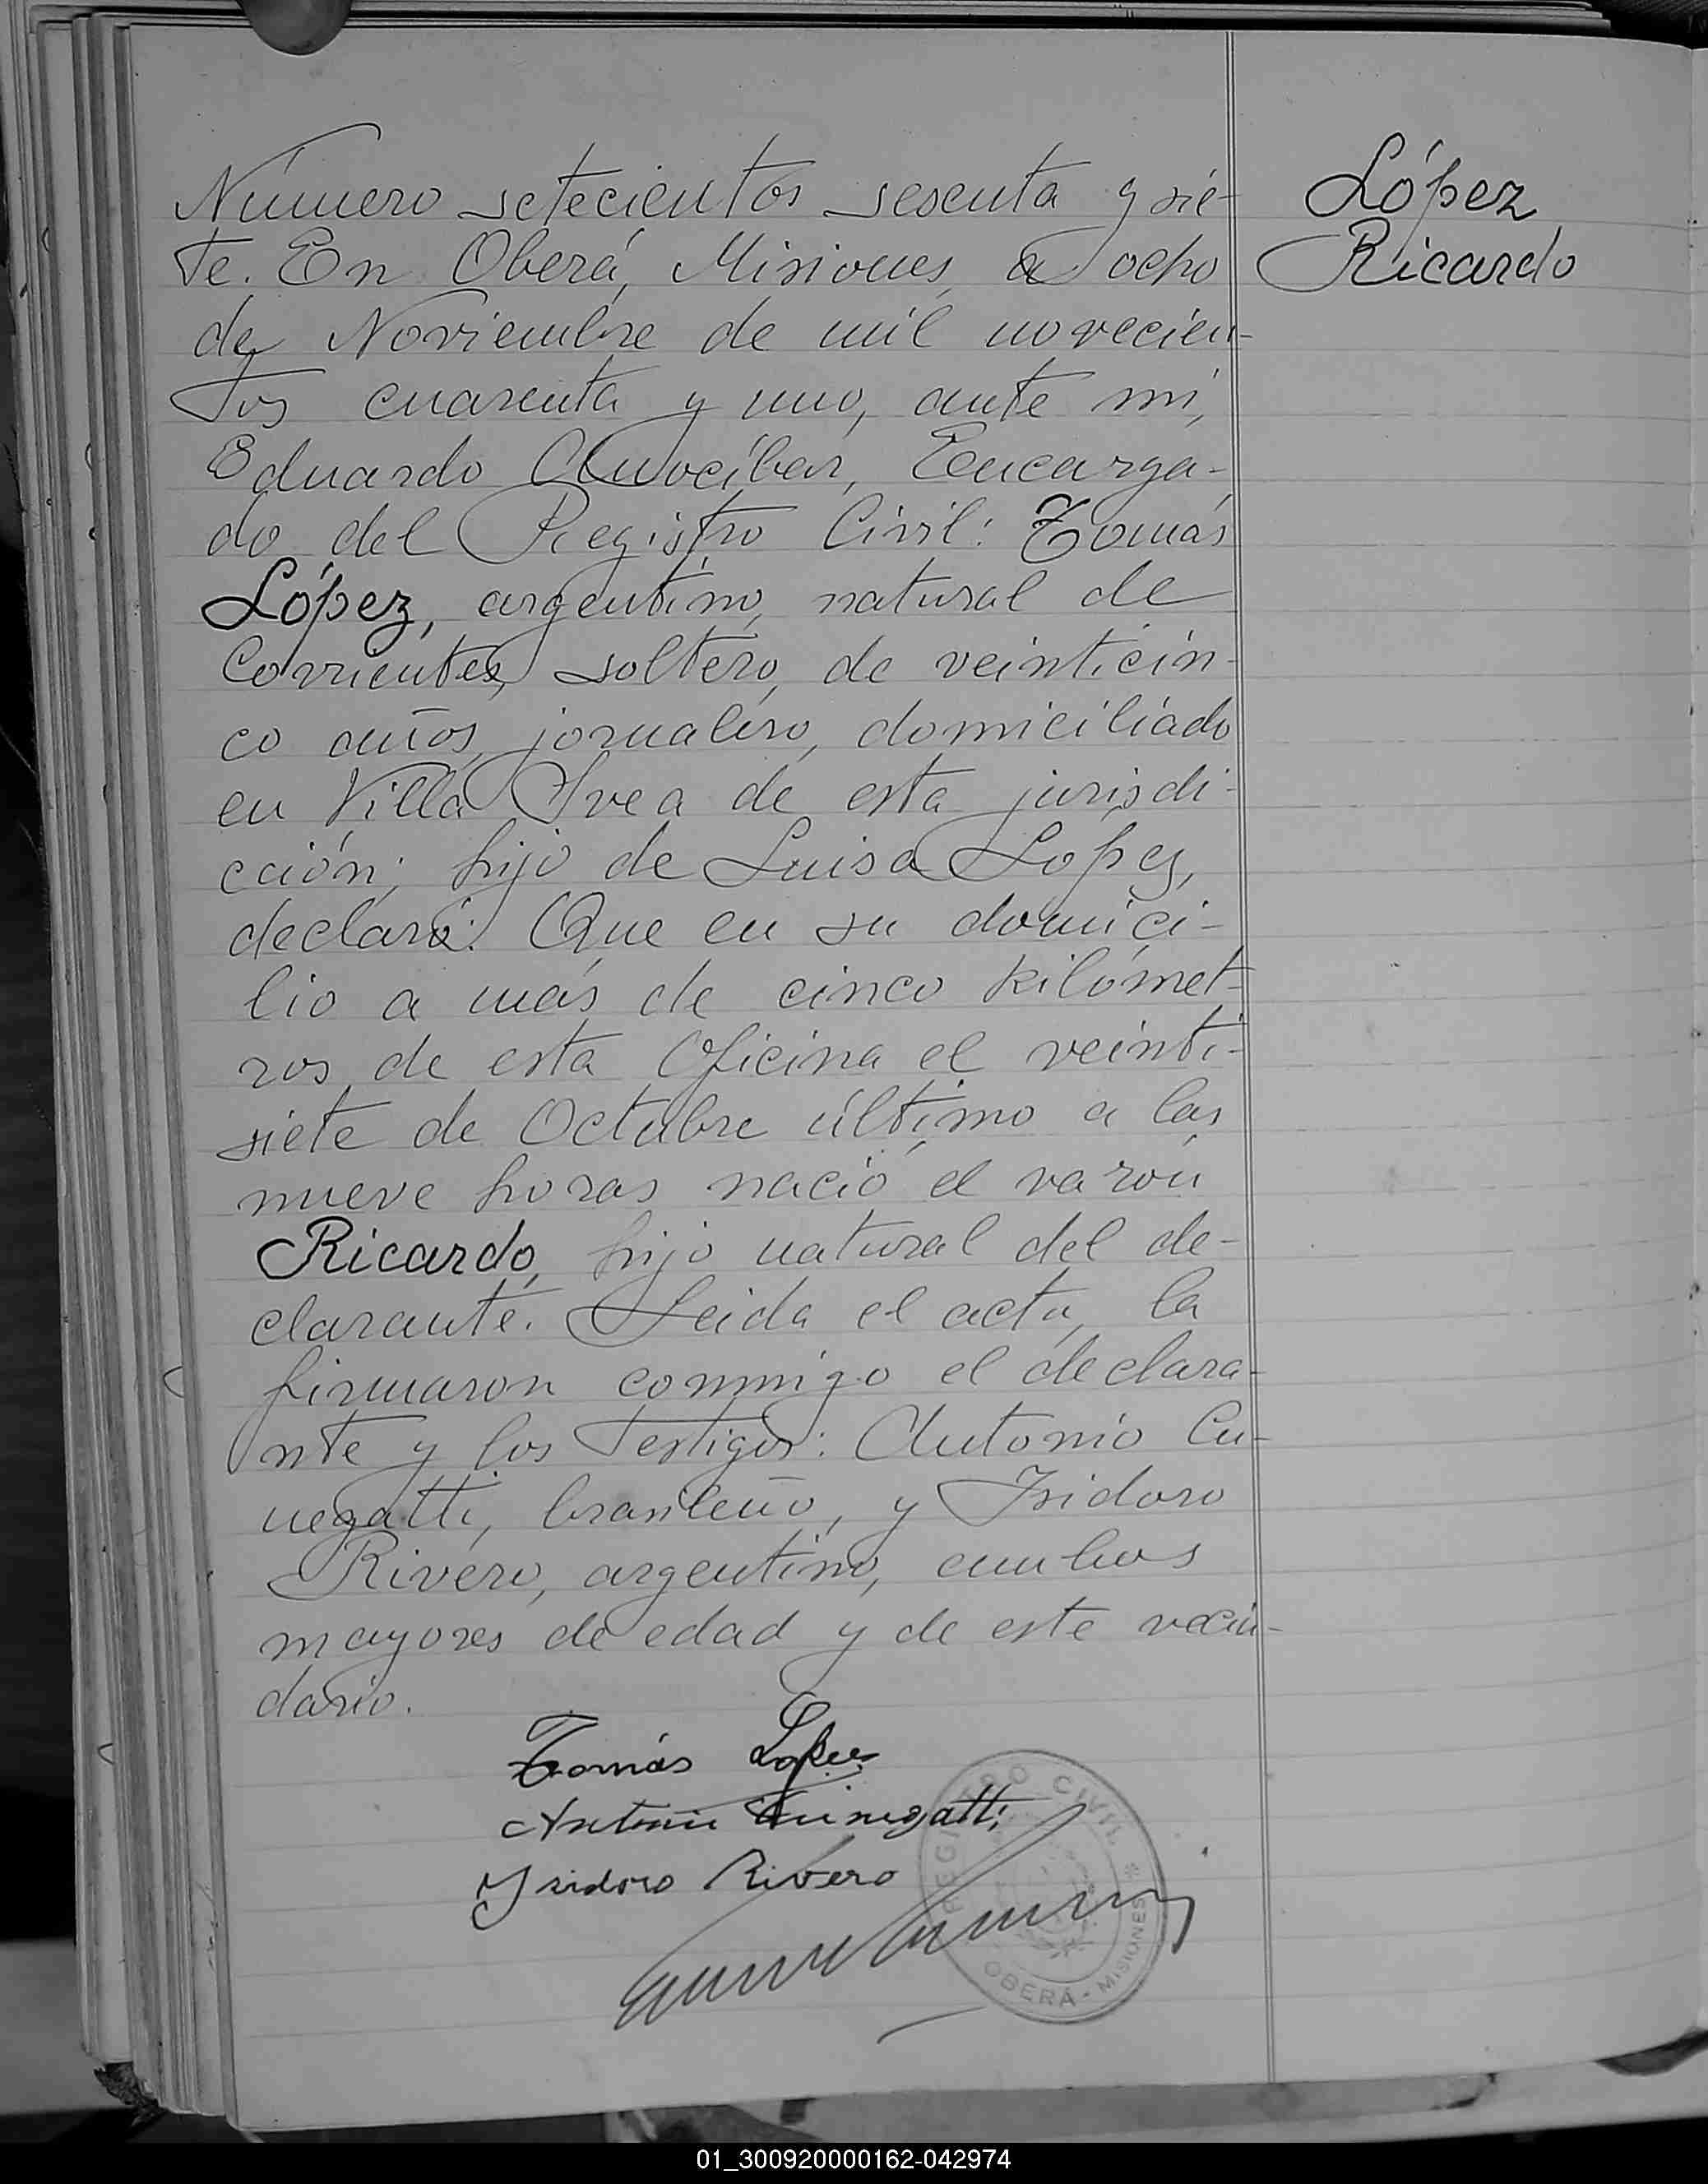 Número setecientos sesenta y sie-
te. En Oberá, Misiones, a ocho
de Noviembre de mil novecien-
tos cuarenta y uno, ante mí,
Eduardo Amocíbar, Encarga-
do del Registro Civil: Tomás
López, argentino, natural de
Corrientes, soltero, de veinticin-
co años, jornalero, domiciliado
en Villa Svea de esta jurisdi-
cción; hijo de Luisa Lopez,
declaró: Que en su domici-
lio a más de cinco kilómet-
ros de esta Oficina el veinti-
siete de Octubre último a las
nueve horas nació el varón
Ricardo, hijo natural del de-
clarante. Leida el acta, la
firmaron conmigo el declara-
nte y los testigos: Antonio Cu-
negatti, brasileño, y Isidoro
Rivero, argentino, ambos
mayores de edad y de este vecin-
dario.
López
Ricardo
Tomás Lopez
Antonio Cunegatti
Isidoro Rivero
REGISTRO CIVIL * OBERÁ - MISIONES
01_300920000162-042974